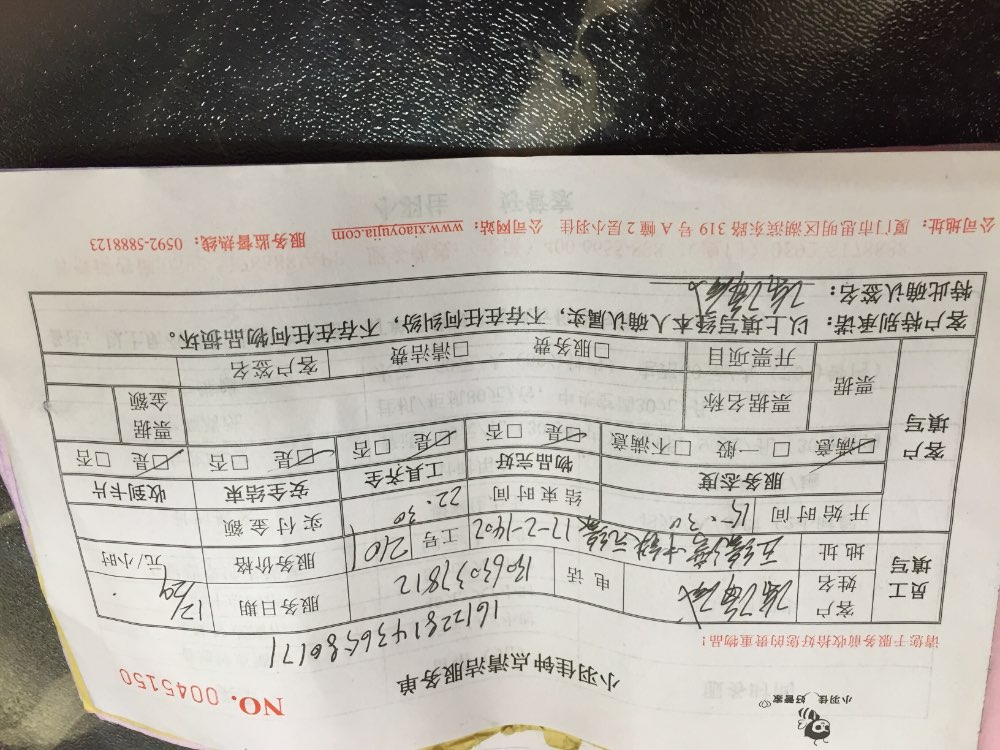 小羽佳 好管家
小羽佳钟点清洁服务单
NO. 0045150
请您于服务前收拾好您的贵重物品！
161228143658 80171
员工填写
客户姓名
电话
13063037812
服务日期
12/29
地址
五缘湾
17-2-1402
工号
2101
服务价格
元/小时
开始时间
15:30
结束时间
22:30
实付金额
客户填写
服务态度
物品完好
工具齐全
安全结束
收到卡片
☑满意 □一般 □不满意
☑是 □否
☑是 □否
☑是 □否
☑是 □否
票据
票据名称
票据金额
开票项目
□服务费 □清洁费
客户签名
客户特别承诺：以上填写经本人确认属实，不存在任何纠纷，不存在任何物品损坏。
特此确认签名：
公司地址：厦门市思明区湖滨东路 319 号 A 幢 2 层小羽佳 公司网站：www.xiaoyujia.com 服务监督热线：0592-5888123